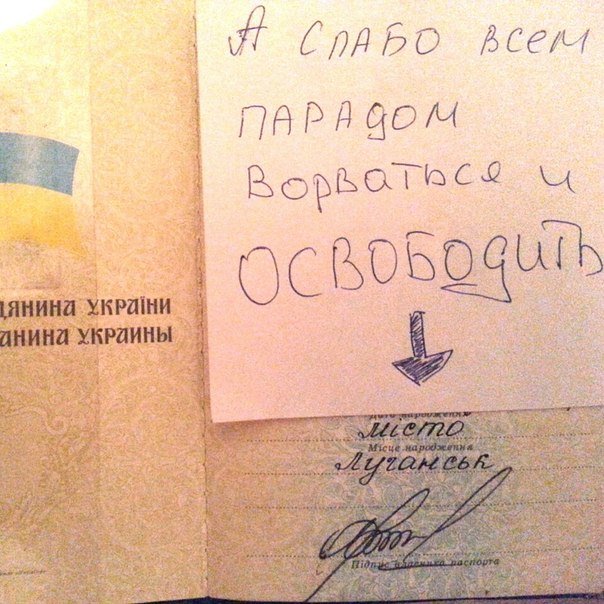 А СЛАБО ВСЕМ
ПАРАДОМ
ВОРВАТЬСЯ И
ОСВОБОДИТЬ
ДЯНИНА УКРАЇНИ
АНИНА УКРАИНЫ
Дата народження
місто
Місце народження
Луганськ
Підпис власника паспорта